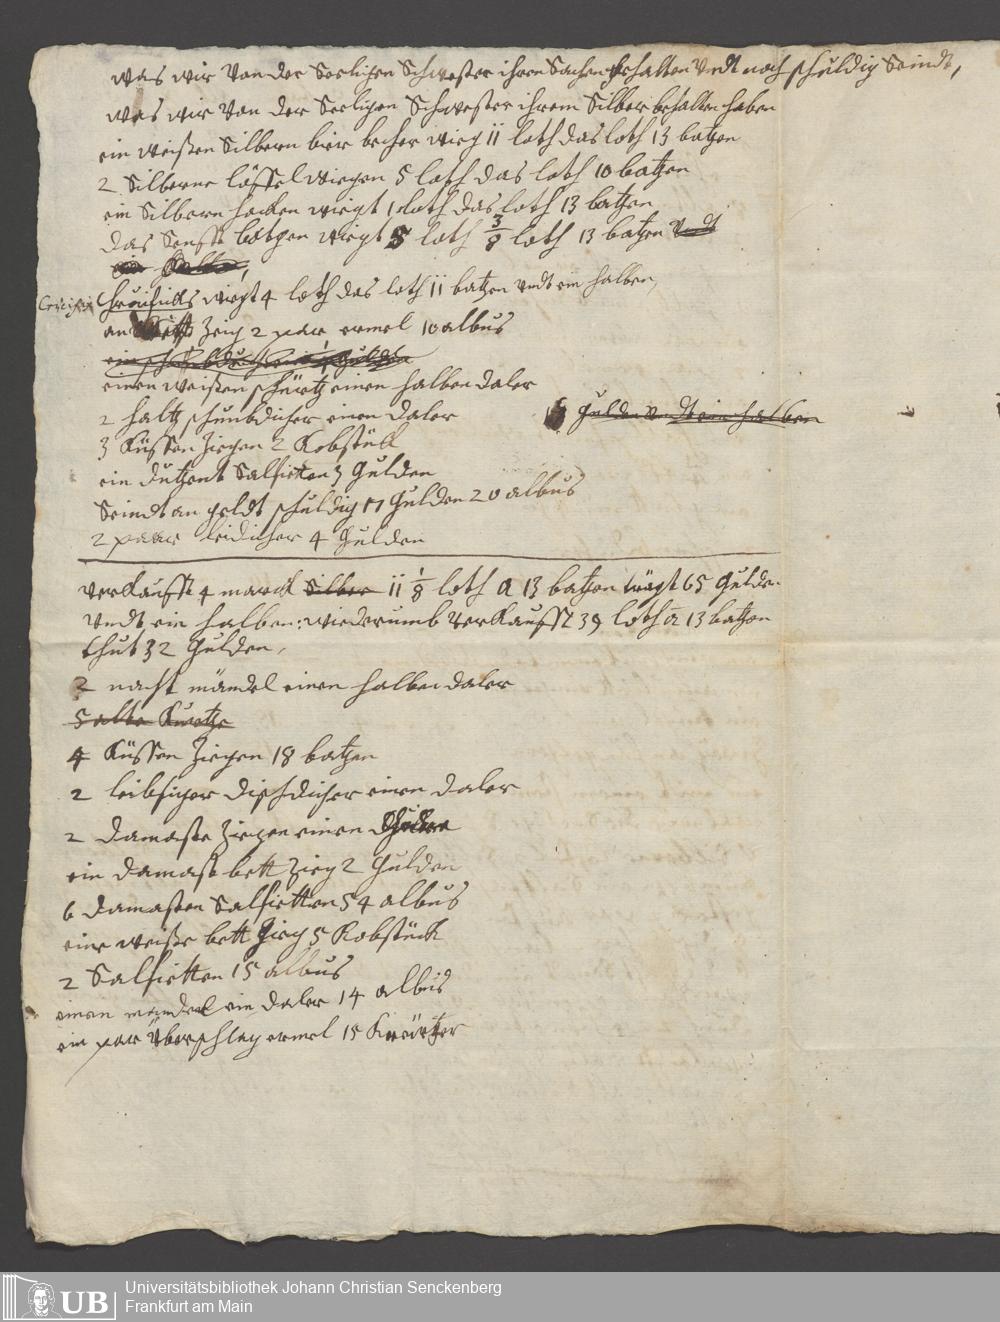 was wir von der Seeligen Schwester ihren Sachen behalten undt noch schuldig Seindt,
was wir von der Seeligen Schwester ihrem Silber behalten haben
ein weißen Silbern bier becher wieg 11 loth das loth 13 batzen
2 Silberne löffel wiegen 5 loth das loth 10 batzen
ein Silbern hacken wiegt 1 loth das loth 13 batzen
das Senfft wiegt 5 loth 3/8 loth 13 batzen undt
ein
Crucifix wiegt 4 loth das loth 11 batzen undt ein halben,
an Zieg 2 par ermel 10 albus
einen weißen schürtz einen halben daler
2 haltz einen daler
gulden undt ein halben
3 Küssen Ziegen 2 Kobstück
ein dutzent Salfietten 3 gulden
Seindt an geldt schuldig 17 gulden 20 albus
2 paar 4 gulden
verkaufft 4 marck Silber 11 1/8 loth a 13 batzen trägt 65 gulden
undt ein halben: wiederumb verkaufft 39 loth a 13 batzen
thut 32 gulden,
2 nacht mändel einen halben daler
5 alte
4 Küssen Ziegen 18 batzen
2 leibsiger dischdicher einen daler
2 damaste Ziegen einen
ein damast bett Zieg 2 gulden
6 damasten Salfietten 54 albus
eine weiße bett Zieg 5 Kobstück
2 Salfietten 15 albus
einen mandel ein daler 14 albus
ein par überschlag ermel 15 Kreützer
UB
Universitätsbibliothek Johann Christian Senckenberg
Frankfurt am Main